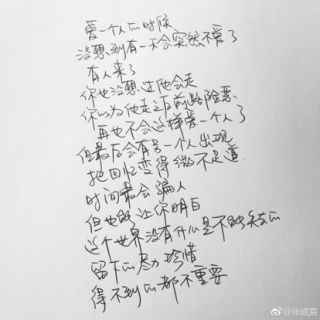 爱一个人的时候
没想到有一天会突然不爱了
有人来了
你也没想过他会走
你以为他走之后前路险恶
再也不会这样爱一个人了
但最后会有另一个人出现
把回忆变得微不足道
时间最会骗人
但也能让你明白
这个世界没有什么是不能失去的
留下的尽力珍惜
得不到的都不重要
@张皓宸